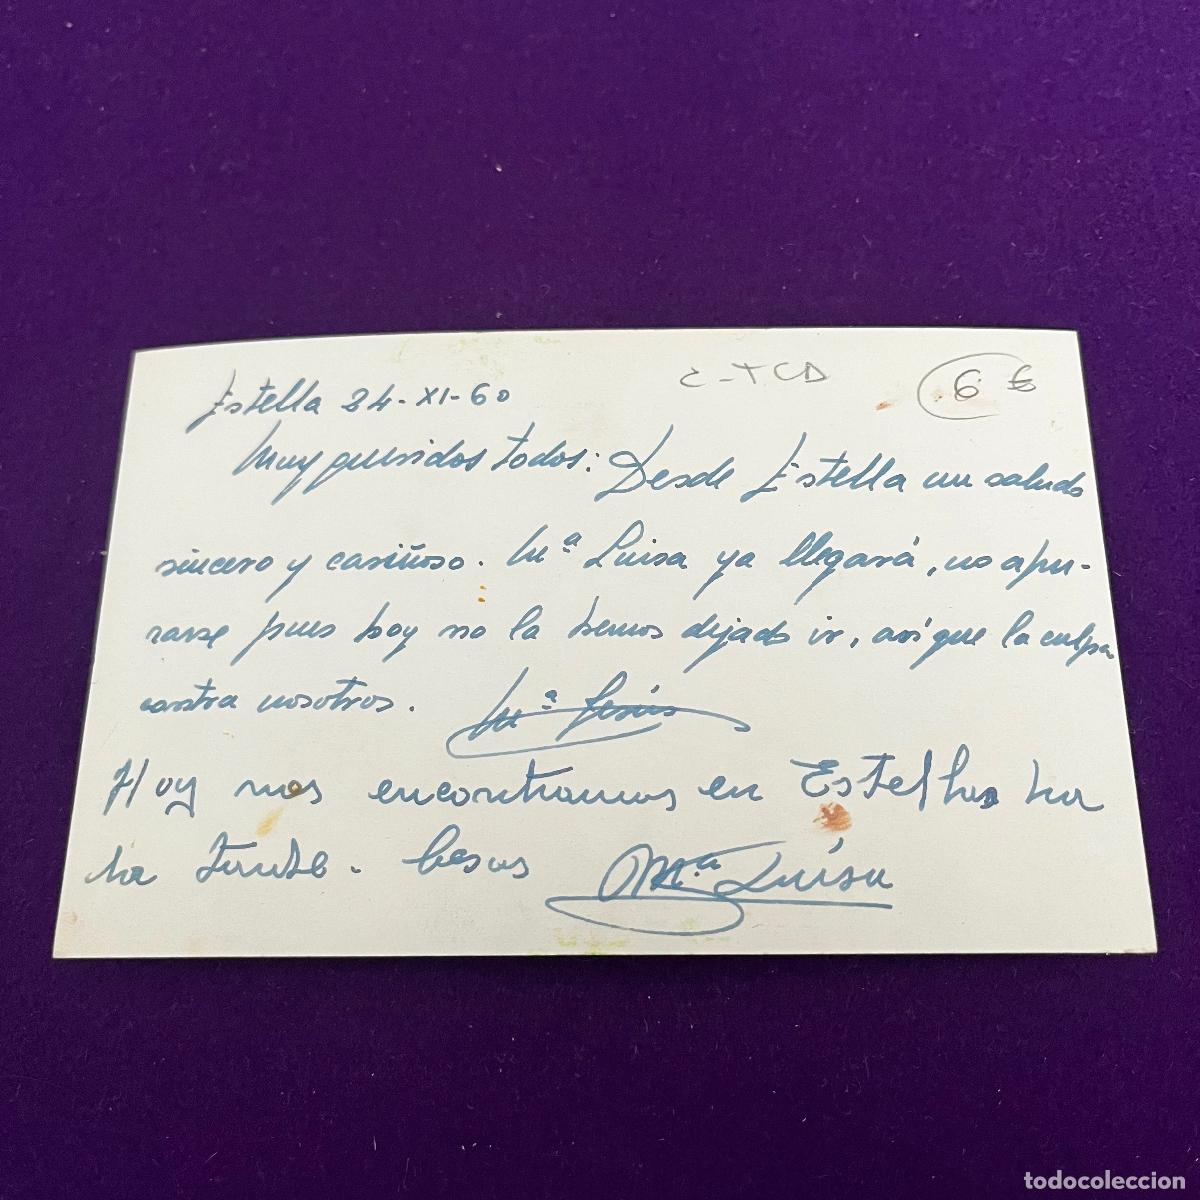 C-TCD
6 €
Estella 24-XI-60
Muy queridos todos: Desde Estella un saludo
sincero y cariñoso. Mª Luisa ya llegará, no apu-
rarse pues hoy no la hemos dejado ir, así que la culpa
contra nosotros. Mª Jesús
Hoy nos encontramos en Estella
la tarde. besos Mª Luisa
todocoleccion